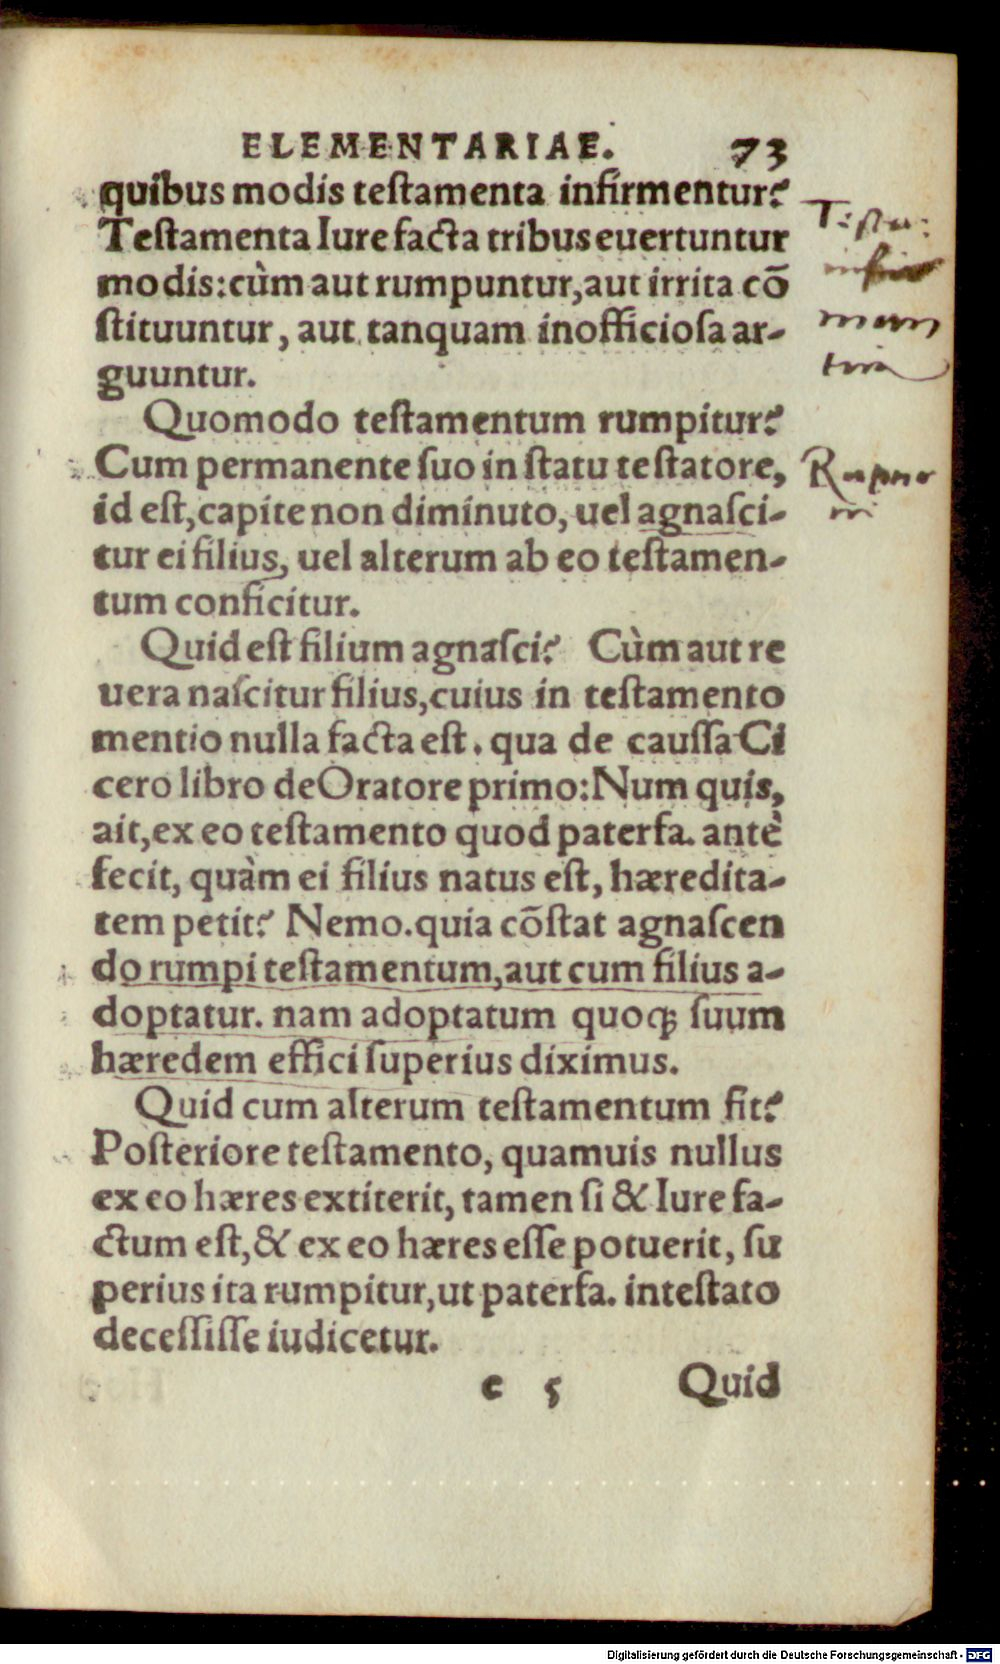 ELEMENTARIAE. 73
quibus modis testamenta infirmentur?
Testamenta Iure facta tribus euertuntur
modis: cùm aut rumpuntur, aut irrita cō
stituuntur, aut tanquam inofficiosa ar-
guuntur.
Quomodo testamentum rumpitur?
Cum permanente suo in statu testatore,
id est, capite non diminuto, uel agnasci-
tur ei filius, uel alterum ab eo testamen-
tum conficitur.
Quid est filium agnasci? Cùm aut re
uera nascitur filius, cuius in testamento
mentio nulla facta est. qua de caussa Ci
cero libro de Oratore primo: Num quis,
ait, ex eo testamento quod paterfa. antè
fecit, quàm ei filius natus est, hæredita-
tem petit? Nemo. quia cōstat agnascen
do rumpi testamentum, aut cum filius a-
doptatur. nam adoptatum quoqꝫ suum
hæredem effici superius diximus.
Quid cum alterum testamentum fit?
Posteriore testamento, quamuis nullus
ex eo hæres extiterit, tamen si & Iure fa-
ctum est, & ex eo hæres esse potuerit, su
perius ita rumpitur, ut paterfa. intestato
decessisse iudicetur.
e 5 Quid
Digitalisierung gefördert durch die Deutsche Forschungsgemeinschaft - DFG